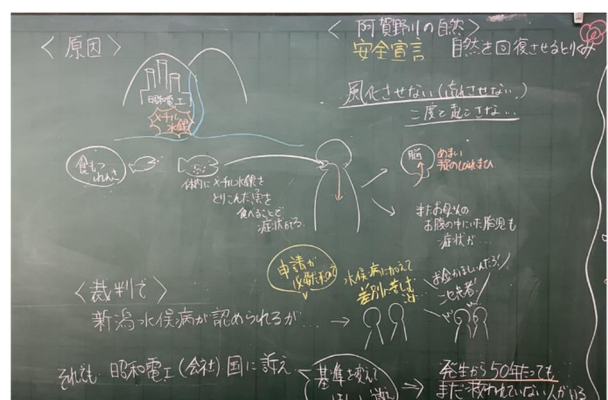 〈原因〉
昭和電工
メチル
水銀
食もつ
れんさ
体内にメチル水銀を
とりこんだ魚を
食べることで
症状がでる
〈阿賀野川の自然〉
安全宣言 自然を回復させるとりくみ
風化させない
二度と起こさない
脳
めまい
またお母さんの
お腹の中にいた胎児も
症状が…
〈裁判で〉
新潟水俣病が認められるが… →
申請が
水俣病に加えて
差別に苦しむ
お金がほしいんだろ!
それでも 昭和電工(会社)国に訴え
基準を変えて
ほしい
→ 発生から50年たっても
まだ救われていない人がいる